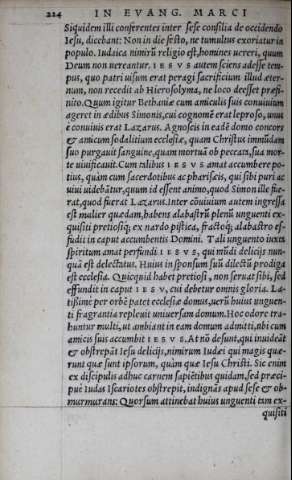 224 IN EVANG. MARCI
Siquidem illi conferentes inter sese consilia de occidendo
Iesu, dicebant: Non in die festo, ne tumultus exoriatur in
populo. Iudaica nimirũ religio est, homines uereri, quum
Deum non uereantur. IESVS autem sciens adesse tem-
pus, quo patri uisum erat peragi sacrificium illud æter-
num, non recedit ab Hierosolyma, ne loco deesset præfi-
nito. Quum igitur Bethaniæ cum amiculis suis conuiuium
ageret in ædibus Simonis, cui cognomẽ erat leproso, unus
è conuiuis erat Lazarus. Agnoscis in eadẽ domo concors
& amicum sodalitium ecclesiæ, quam Christus immũdam
suo purgauit sanguine, quam mortuã ob peccata, sua mor-
te uiuificauit. Cum talibus IESVS amat accumbere po-
tius, quàm cum sacerdotibus ac pharisæis, qui sibi puri ac
uiui uidebãtur, quum id essent animo, quod Simon ille fue-
rat, quod fuerat Lazarus. Inter cõuiuium autem ingressa
est mulier quædam, habens alabastrũ plenũ unguenti ex-
quisiti pretiosiq́; ex nardo pistica, fractoq́; alabastro ef-
fudit in caput accumbentis Domini. Tali unguento iuxta
spiritum amat perfundi IESVS, qui mũdi delicijs nun-
quã est delectatus. Huius in sponsum suũ dilectũ prodiga
est ecclesia. Quicquid habet pretiosi, non seruat sibi, sed
effundit in caput IESV, cui debetur omnis gloria. La-
tissime per orbẽ patet ecclesiæ domus, uerũ huius unguen-
ti fragrantia repleuit uniuersam domum. Hoc odore tra-
huntur multi, ut ambiant in eam domum admitti, ubi cum
amicis suis accumbit IESVS. At nõ desunt, qui inuideãt
& obstrepãt Iesu delicijs, nimirum Iudæi qui magis quæ-
runt quæ sunt ipsorum, quàm quæ Iesu Christi. Sic enim
ex discipulis adhuc carnem sapiẽtibus quidam, sed præci-
puè Iudas Iscariotes obstrepit, indignãs apud sese & ob-
murmurans: Quorsum attinebat huius unguenti tam ex-
quisiti